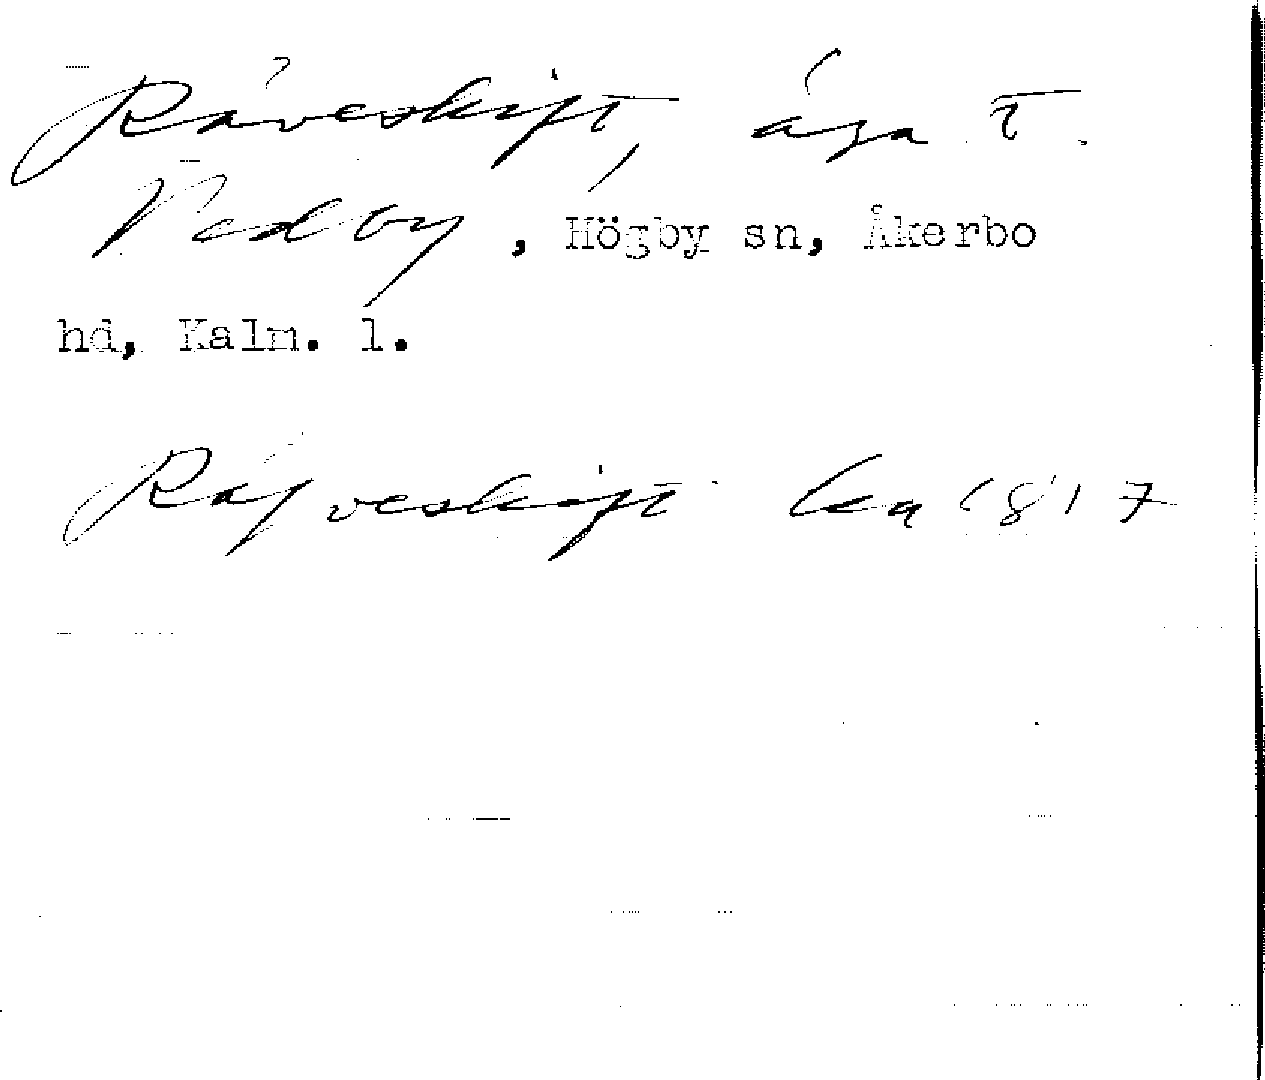 Räveskift, äga t.
Vedby, Högby sn, Åkerbo
hd, Kalm. l.
Räfveskift ka 1817